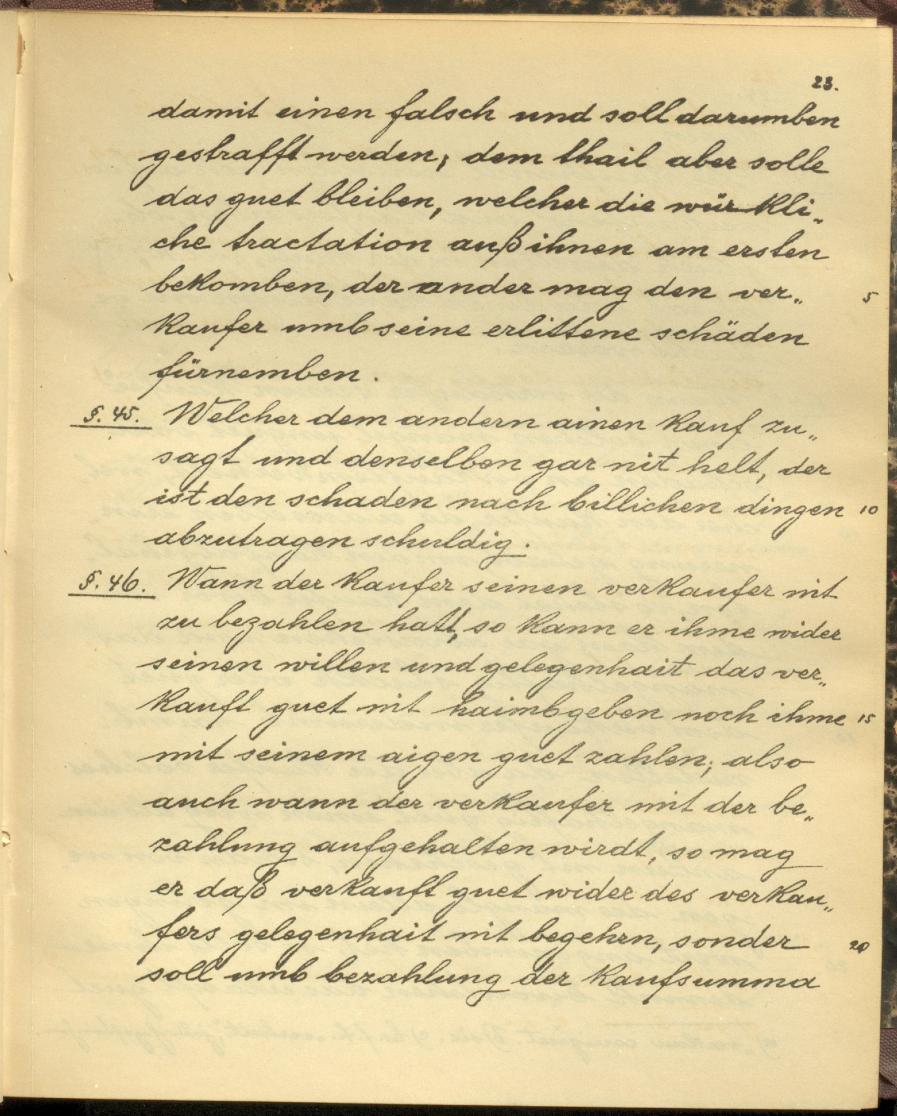 23.
damit einen falsch und soll darumben
gestrafft werden; dem thail aber solle
das guet bleiben, welcher die würkli„
che tractation auß ihnen am ersten
bekomben, der ander mag den ver„ 5
kaufer umb seine erlittene schäden
fürnemben.
§. 45. Welcher dem andern ainen kauf zu„
sagt und denselben gar nit helt, der
ist den schaden nach billichen dingen 10
abzutragen schuldig.
§. 46. Wann der kaufer seinen verkaufer nit
zu bezahlen hatt, so kann er ihme wider
seinen willen und gelegenhait das ver„
kauft guet nit haimbgeben noch ihme 15
mit seinem aigen guet zahlen; also
auch wann der verkaufer mit der be„
zahlung aufgehalten wirdt, so mag
er daß verkauft guet wider des verkau„
fers gelegenhait nit begehrn, sonder 20
soll umb bezahlung der kaufsumma